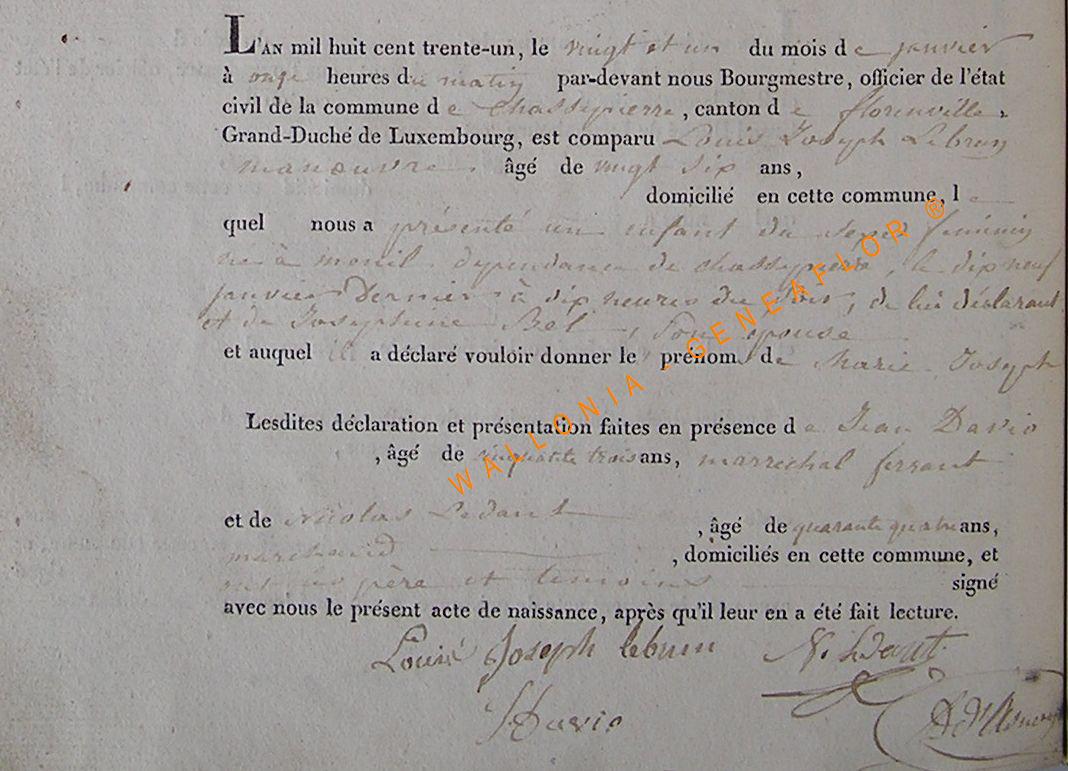 L'AN mil huit cent trente-un, le vingt et un du mois de janvier
à onze heures du matin par-devant nous Bourgmestre, officier de l'état
civil de la commune de Chassepierre, canton de florenville,
Grand-Duché de Luxembourg, est comparu Louis Joseph Lebrun
manouvre, âgé de vingt six ans,
domicilié en cette commune, le
quel nous a présenté un enfant du sexe féminin
né à menil dependance de chassepierre, le dix neuf
janvier dernier à dix heures du soir, de lui déclarant
et de Josephine Bel, son epouse
et auquel il a déclaré vouloir donner le prénom de Marie Joseph
Lesdites déclaration et présentation faites en présence de Jean Davio
, âgé de cinquante trois ans, marrechal ferrant
et de Nicolas Ledant , âgé de quarante quatre ans,
marchand , domiciliés en cette commune, et
ont les père et temoins signé
avec nous le présent acte de naissance, après qu'il leur en a été fait lecture.
Louis Joseph lebrun N. Ledant
J Davio
WALLONIA - GENEAFLOR ®